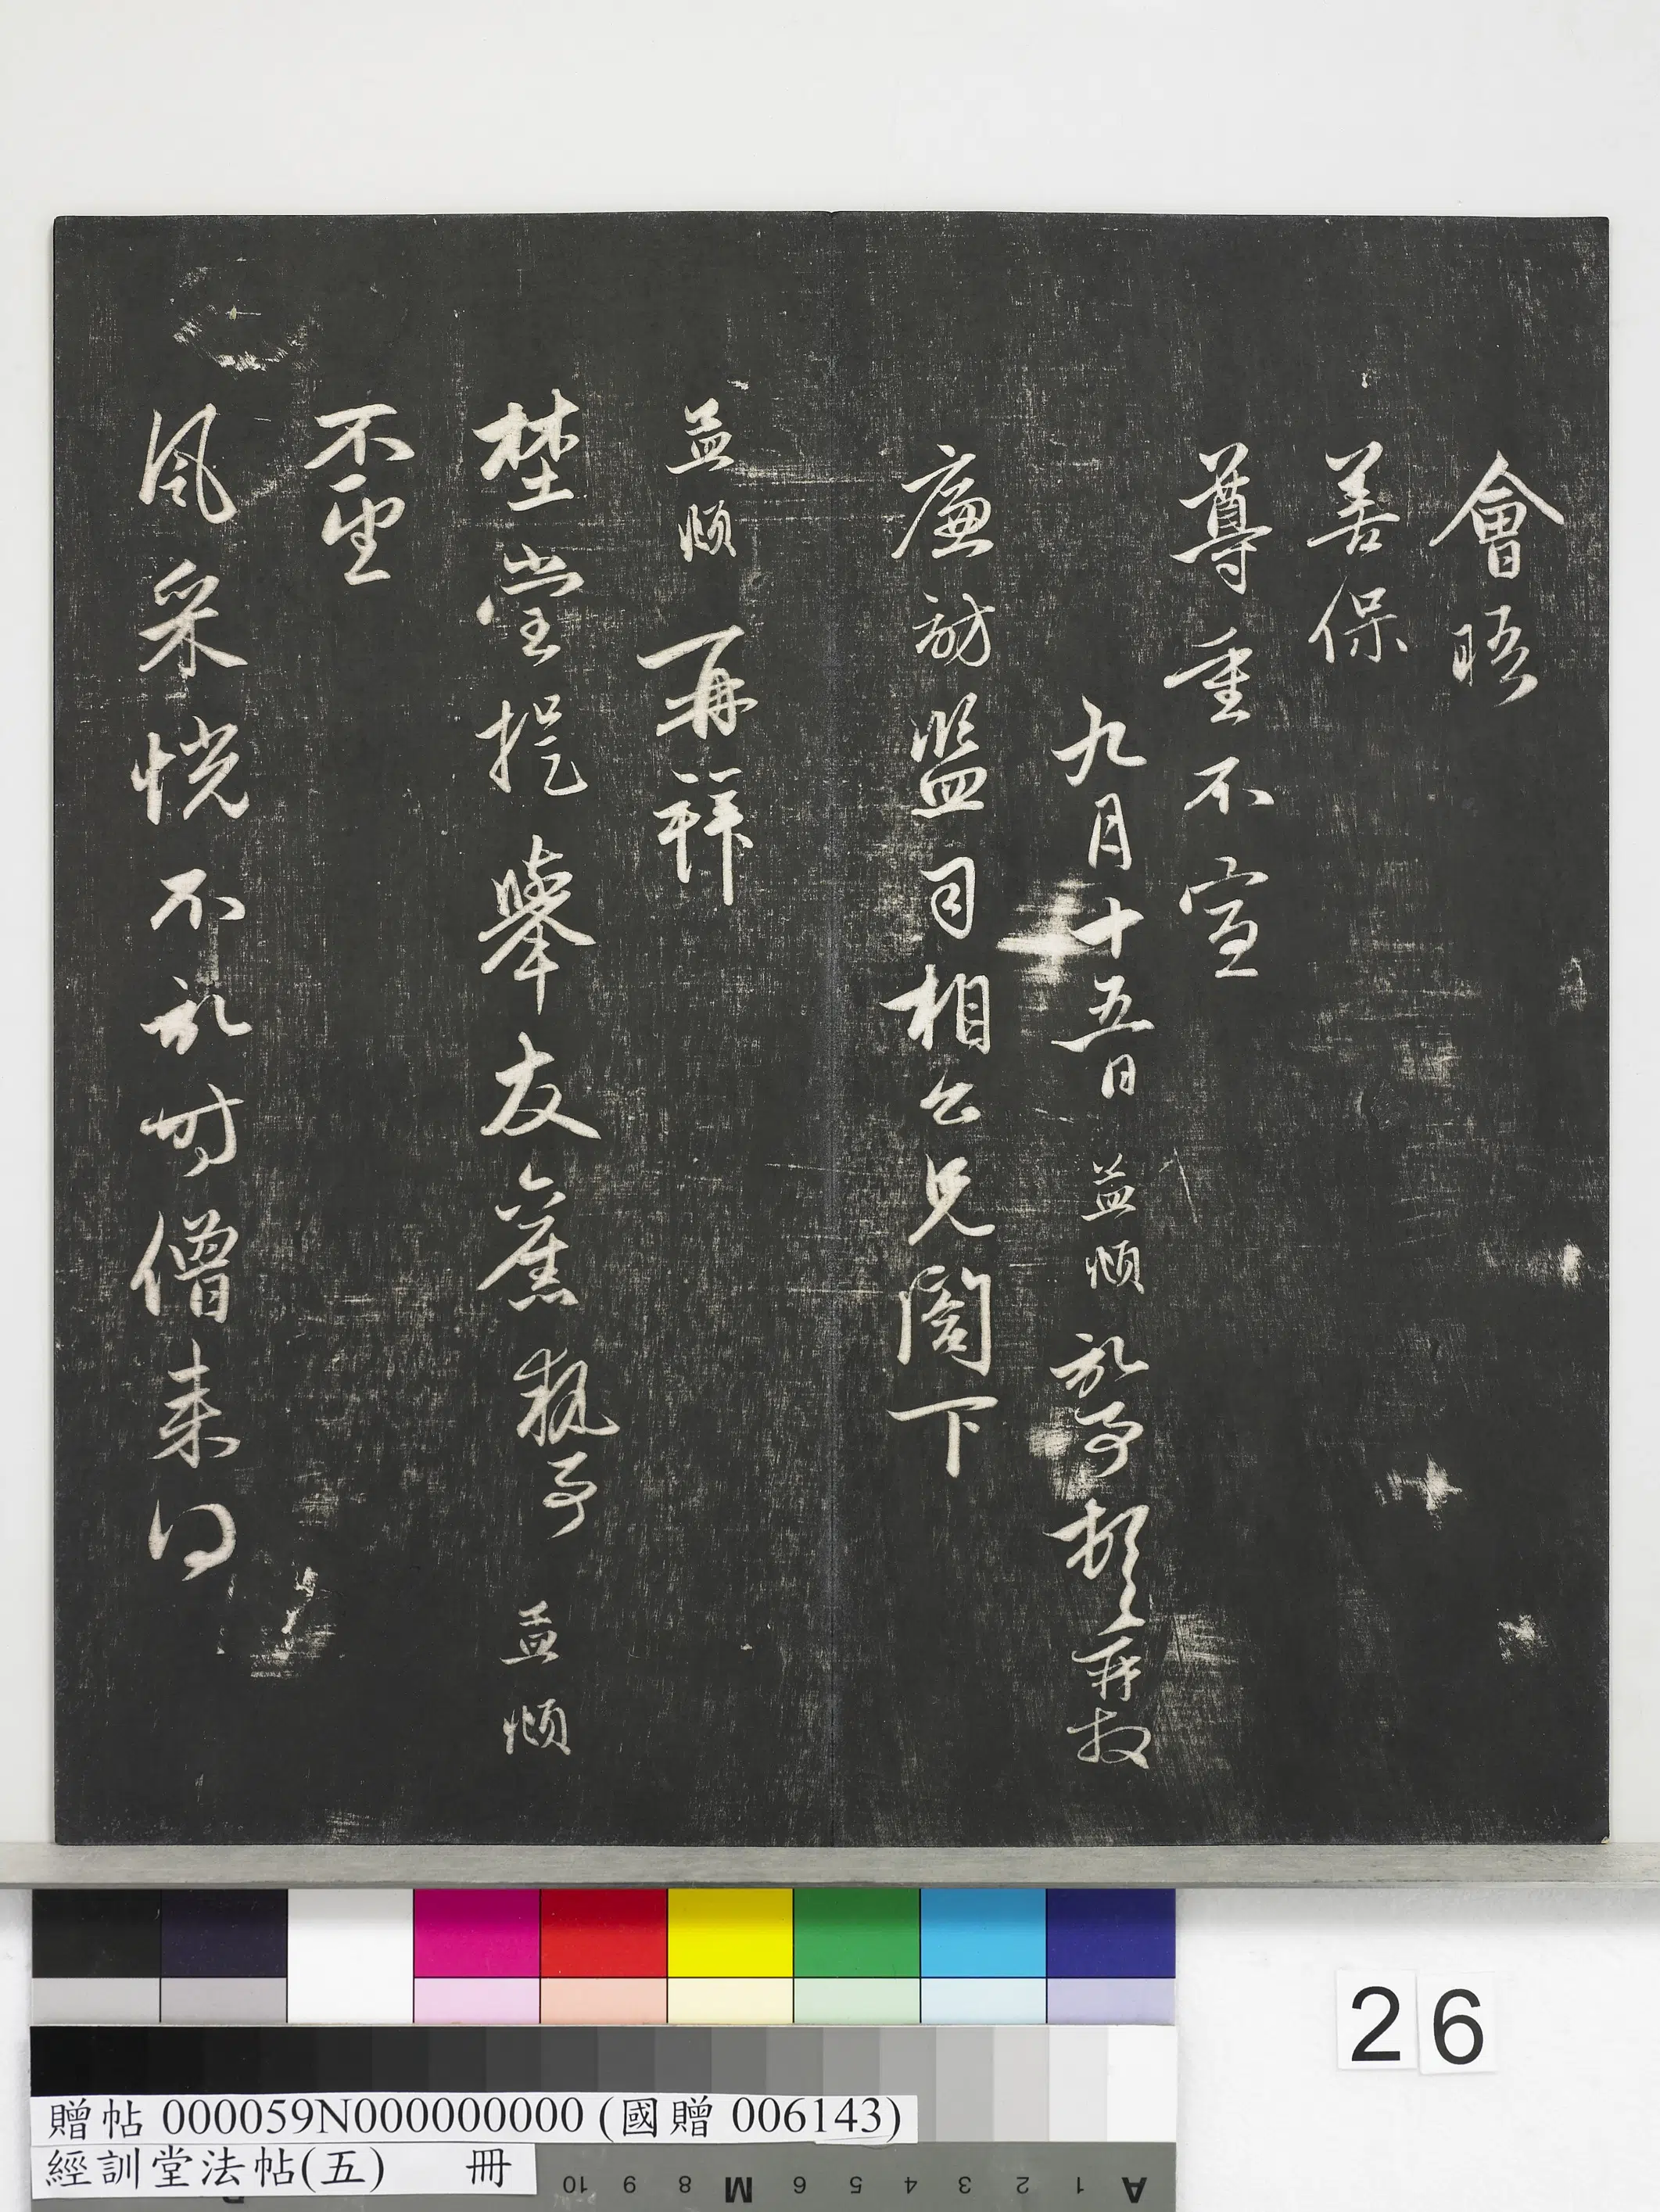 會晤
善保
尊重不宣
九月十五日孟頫記事頓首再拜
廉訪監司相公尺閤下
孟頫再拜
埜堂提舉友舊執事 孟頫
不望
風采恍不記時僧來得
26
贈帖 000059N000000000 (國贈 006143)
經訓堂法帖(五) 冊
A 1 2 3 4 5 6 M 8 9 10